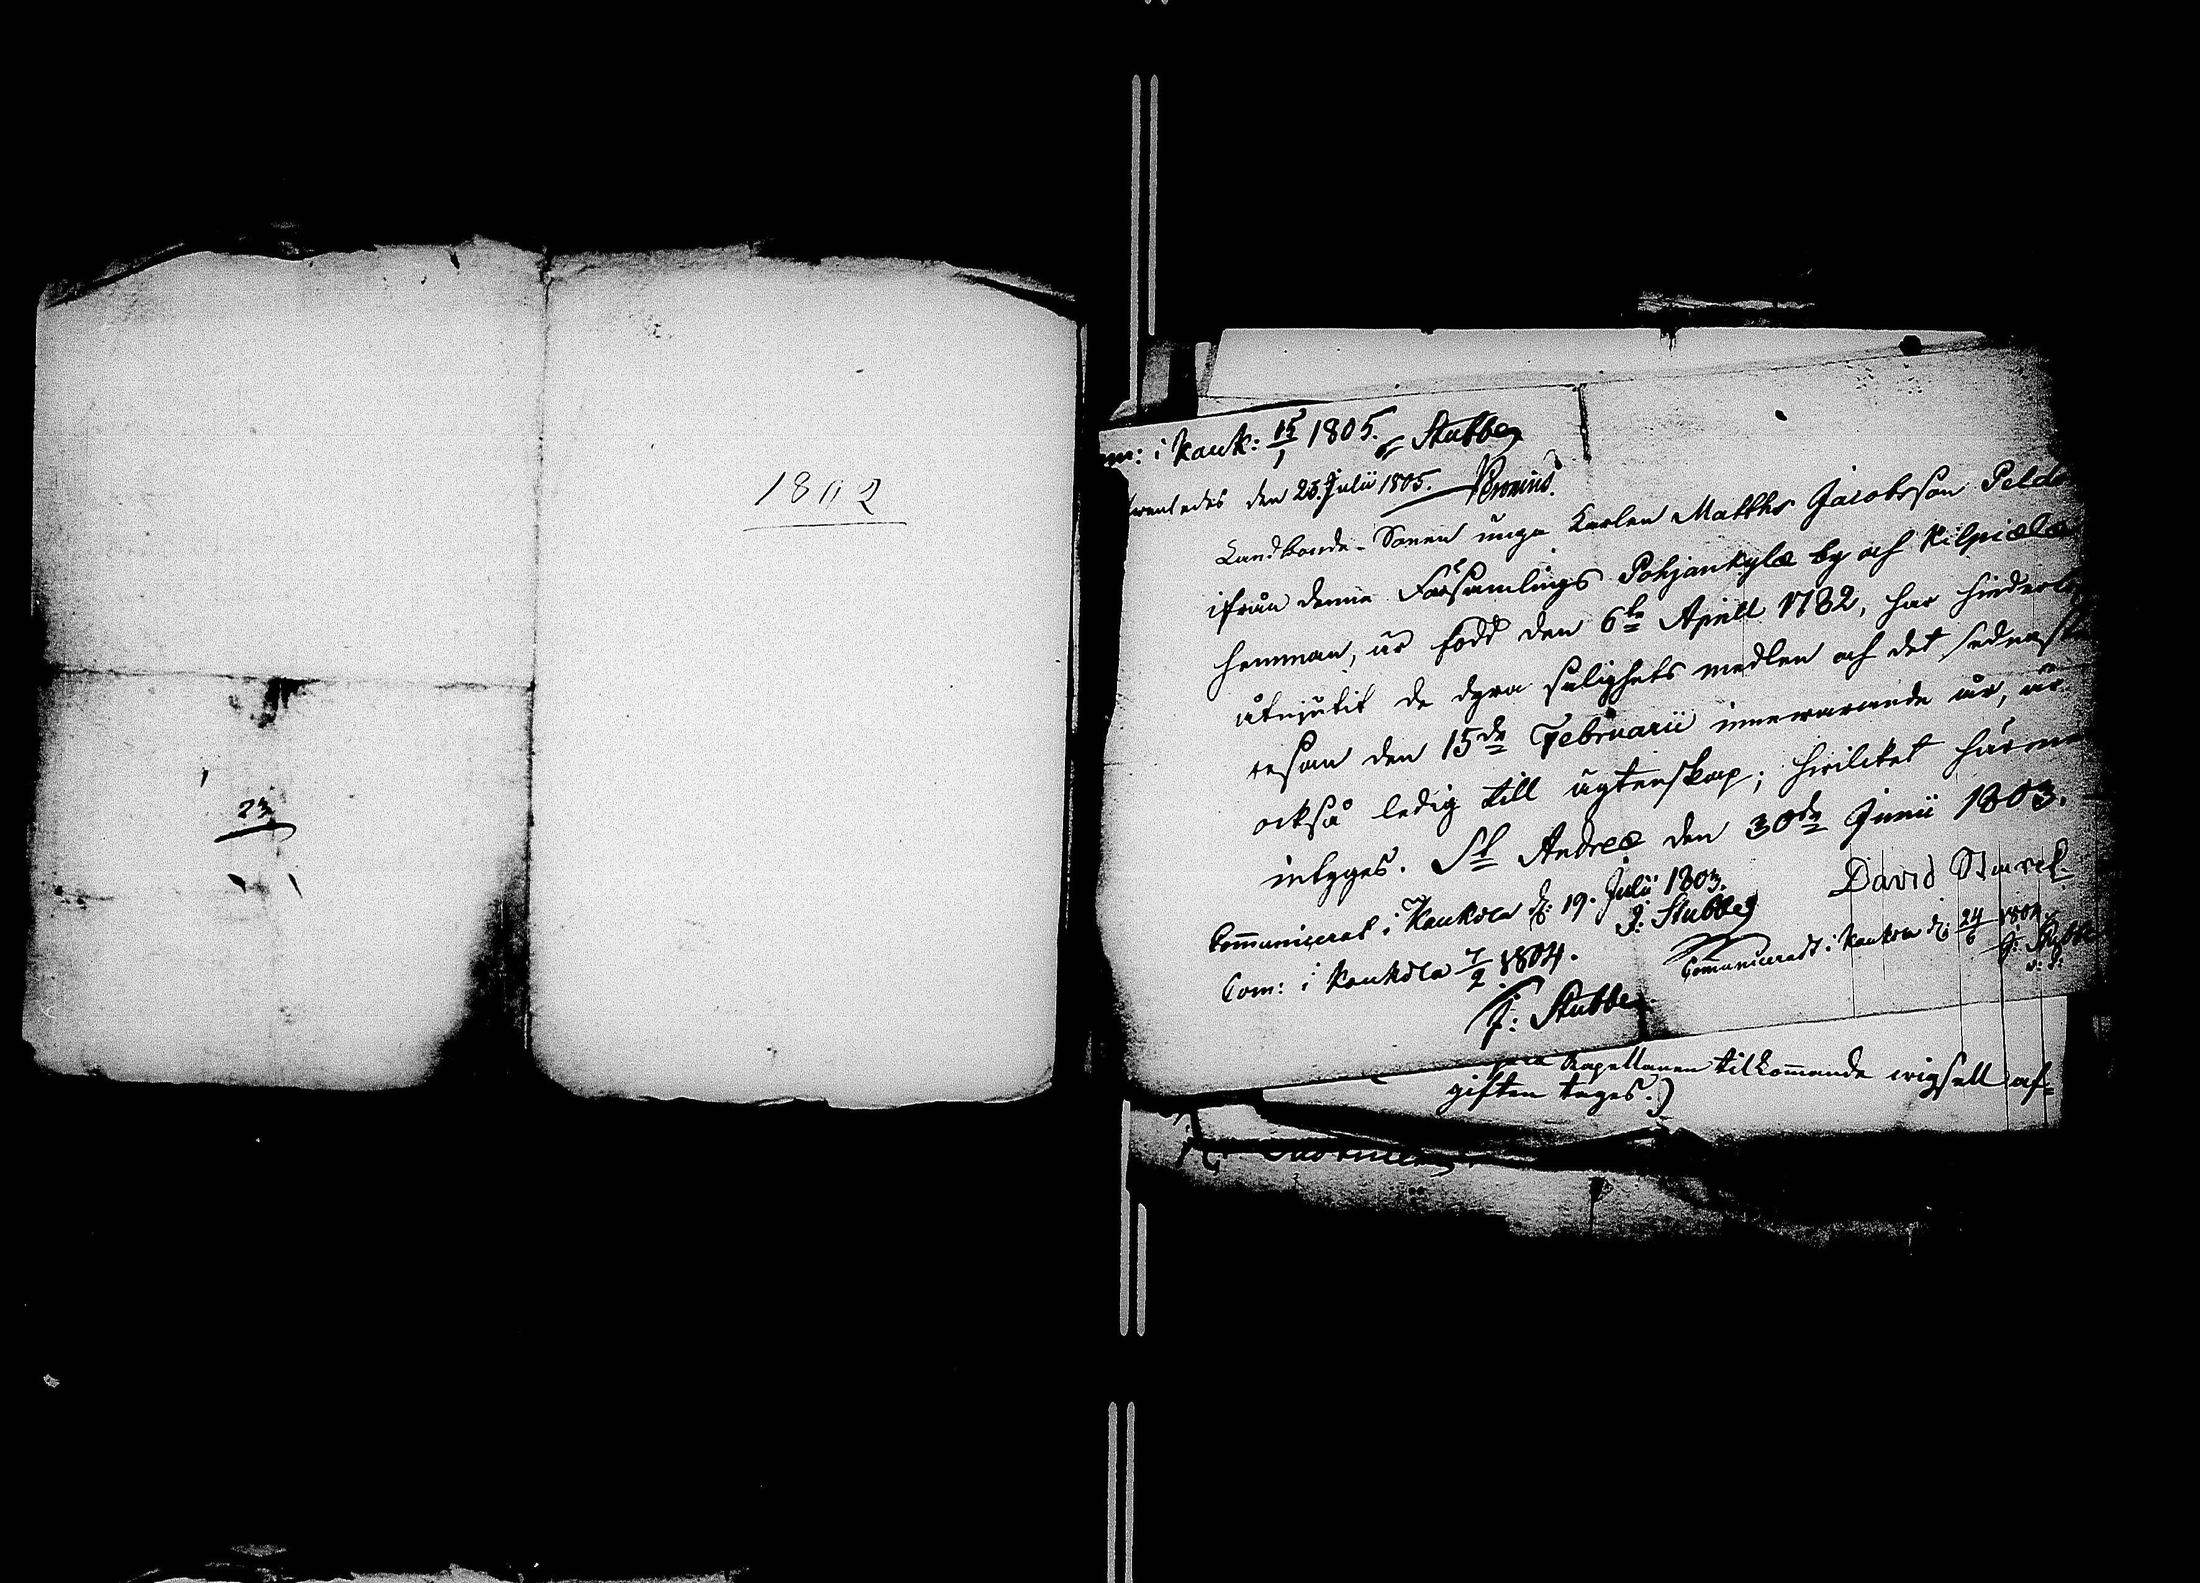 23
1802
m: i Kauk: 15/1 1805. Stubbe
den 23. Julii 1805.
Landbonde-Sonen unga Karlen Matths Jacobsson Peldo
ifrån denne Församlings Pohjankylæ by och Kilpiælæ
hemman, är född den 6te Aprill 1782, har hinderl
åtnjutit de dyra salighets medlen och det sednast
resan den 15de Februarii innewarande år, är
också ledig till ägtenskap; hvilcket härm
intyges. St Andreæ den 30de Junii 1803.
David Starck
Communicerat i Kaukola d: 19. Julii 1803.
J: Stubbe
Communicerat i Kaukola d: 24/6 1804.
J: Stubbe
Com: i Kaukola 7/2 1804.
J: Stubbe
Kapellanen tilkommande wigsell af-
giften tages.)